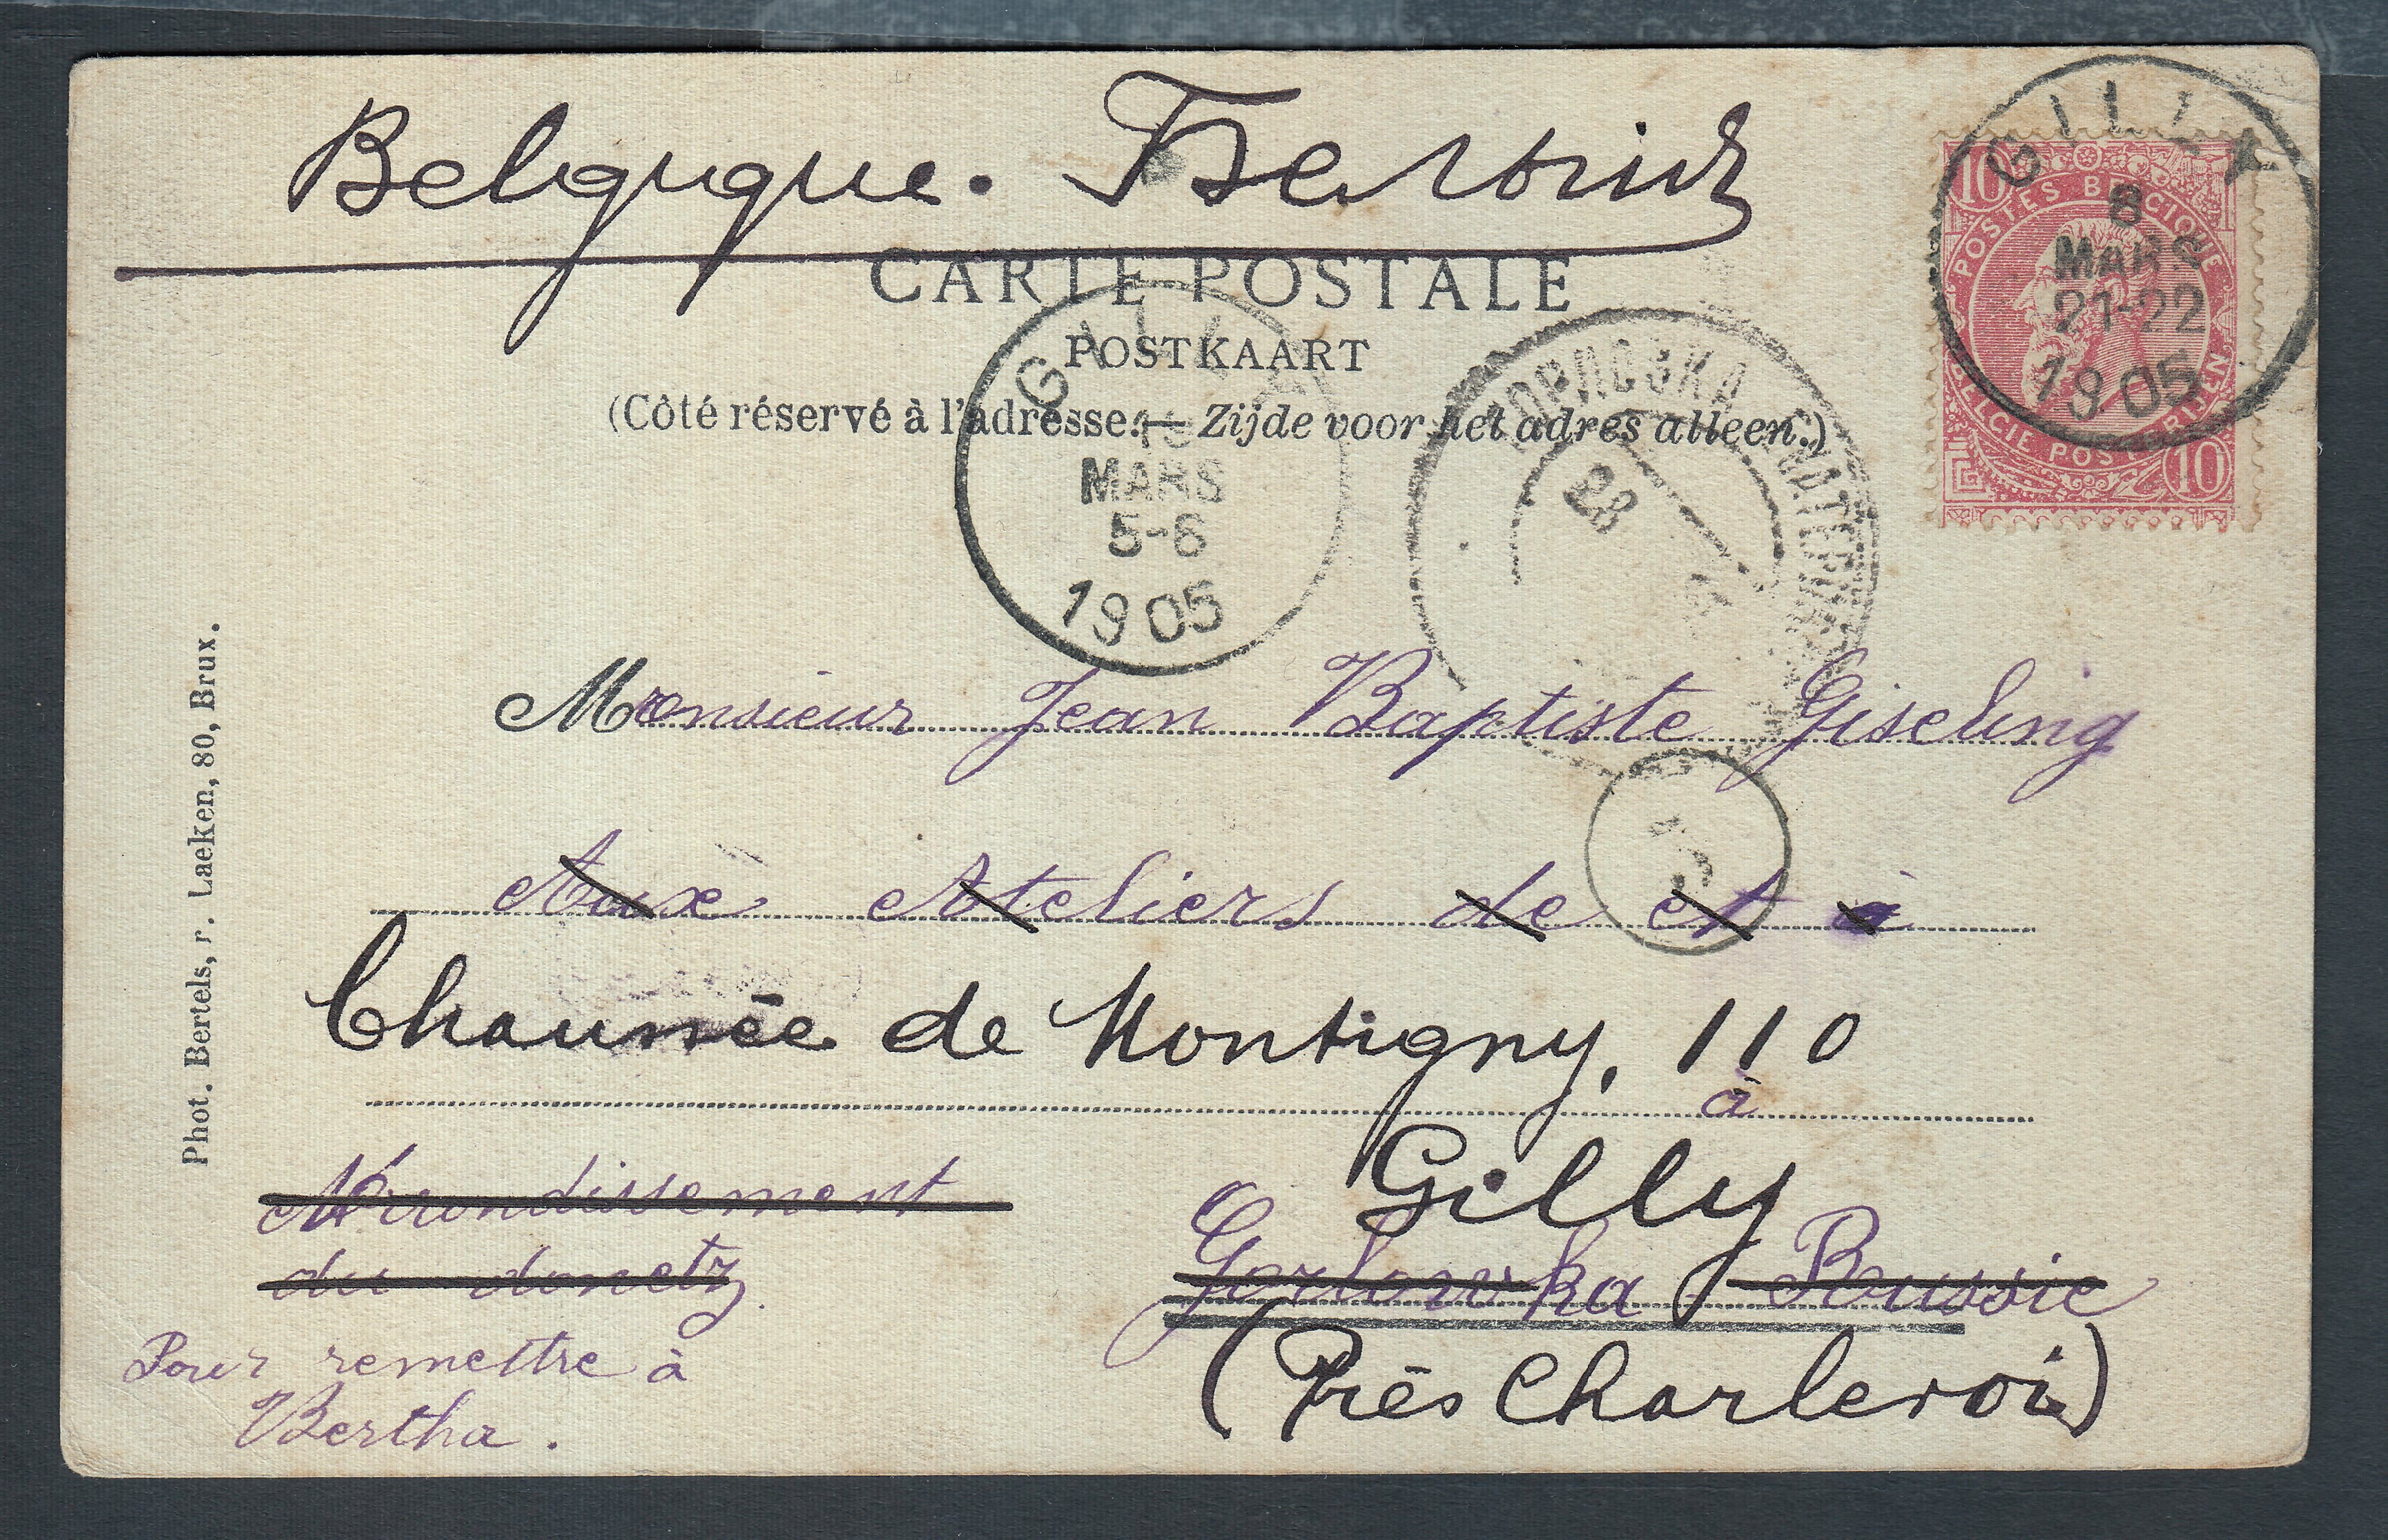 Belgique. Бельгия
CARTE POSTALE
POSTKAART
(Côté réservé à l'adresse. — Zijde voor het adres alleen.)
GILLY
8
MARS
21-22
1905
10
POSTES BELGIQUE
BELGIE POSTERIJEN
10
GILLY
MARS
5-6
1905
ГОРЛОВКА
Monsieur Jean Baptiste Giseling
Aux Ateliers de et à
Chaussée de Montigny, 110
à
Gilly
Arrondissement
du donetz
Gorlowka Roussie
(Près Charleroi)
Pour remettre à
Bertha.
Phot. Bertels, r. Laeken, 80, Brux.